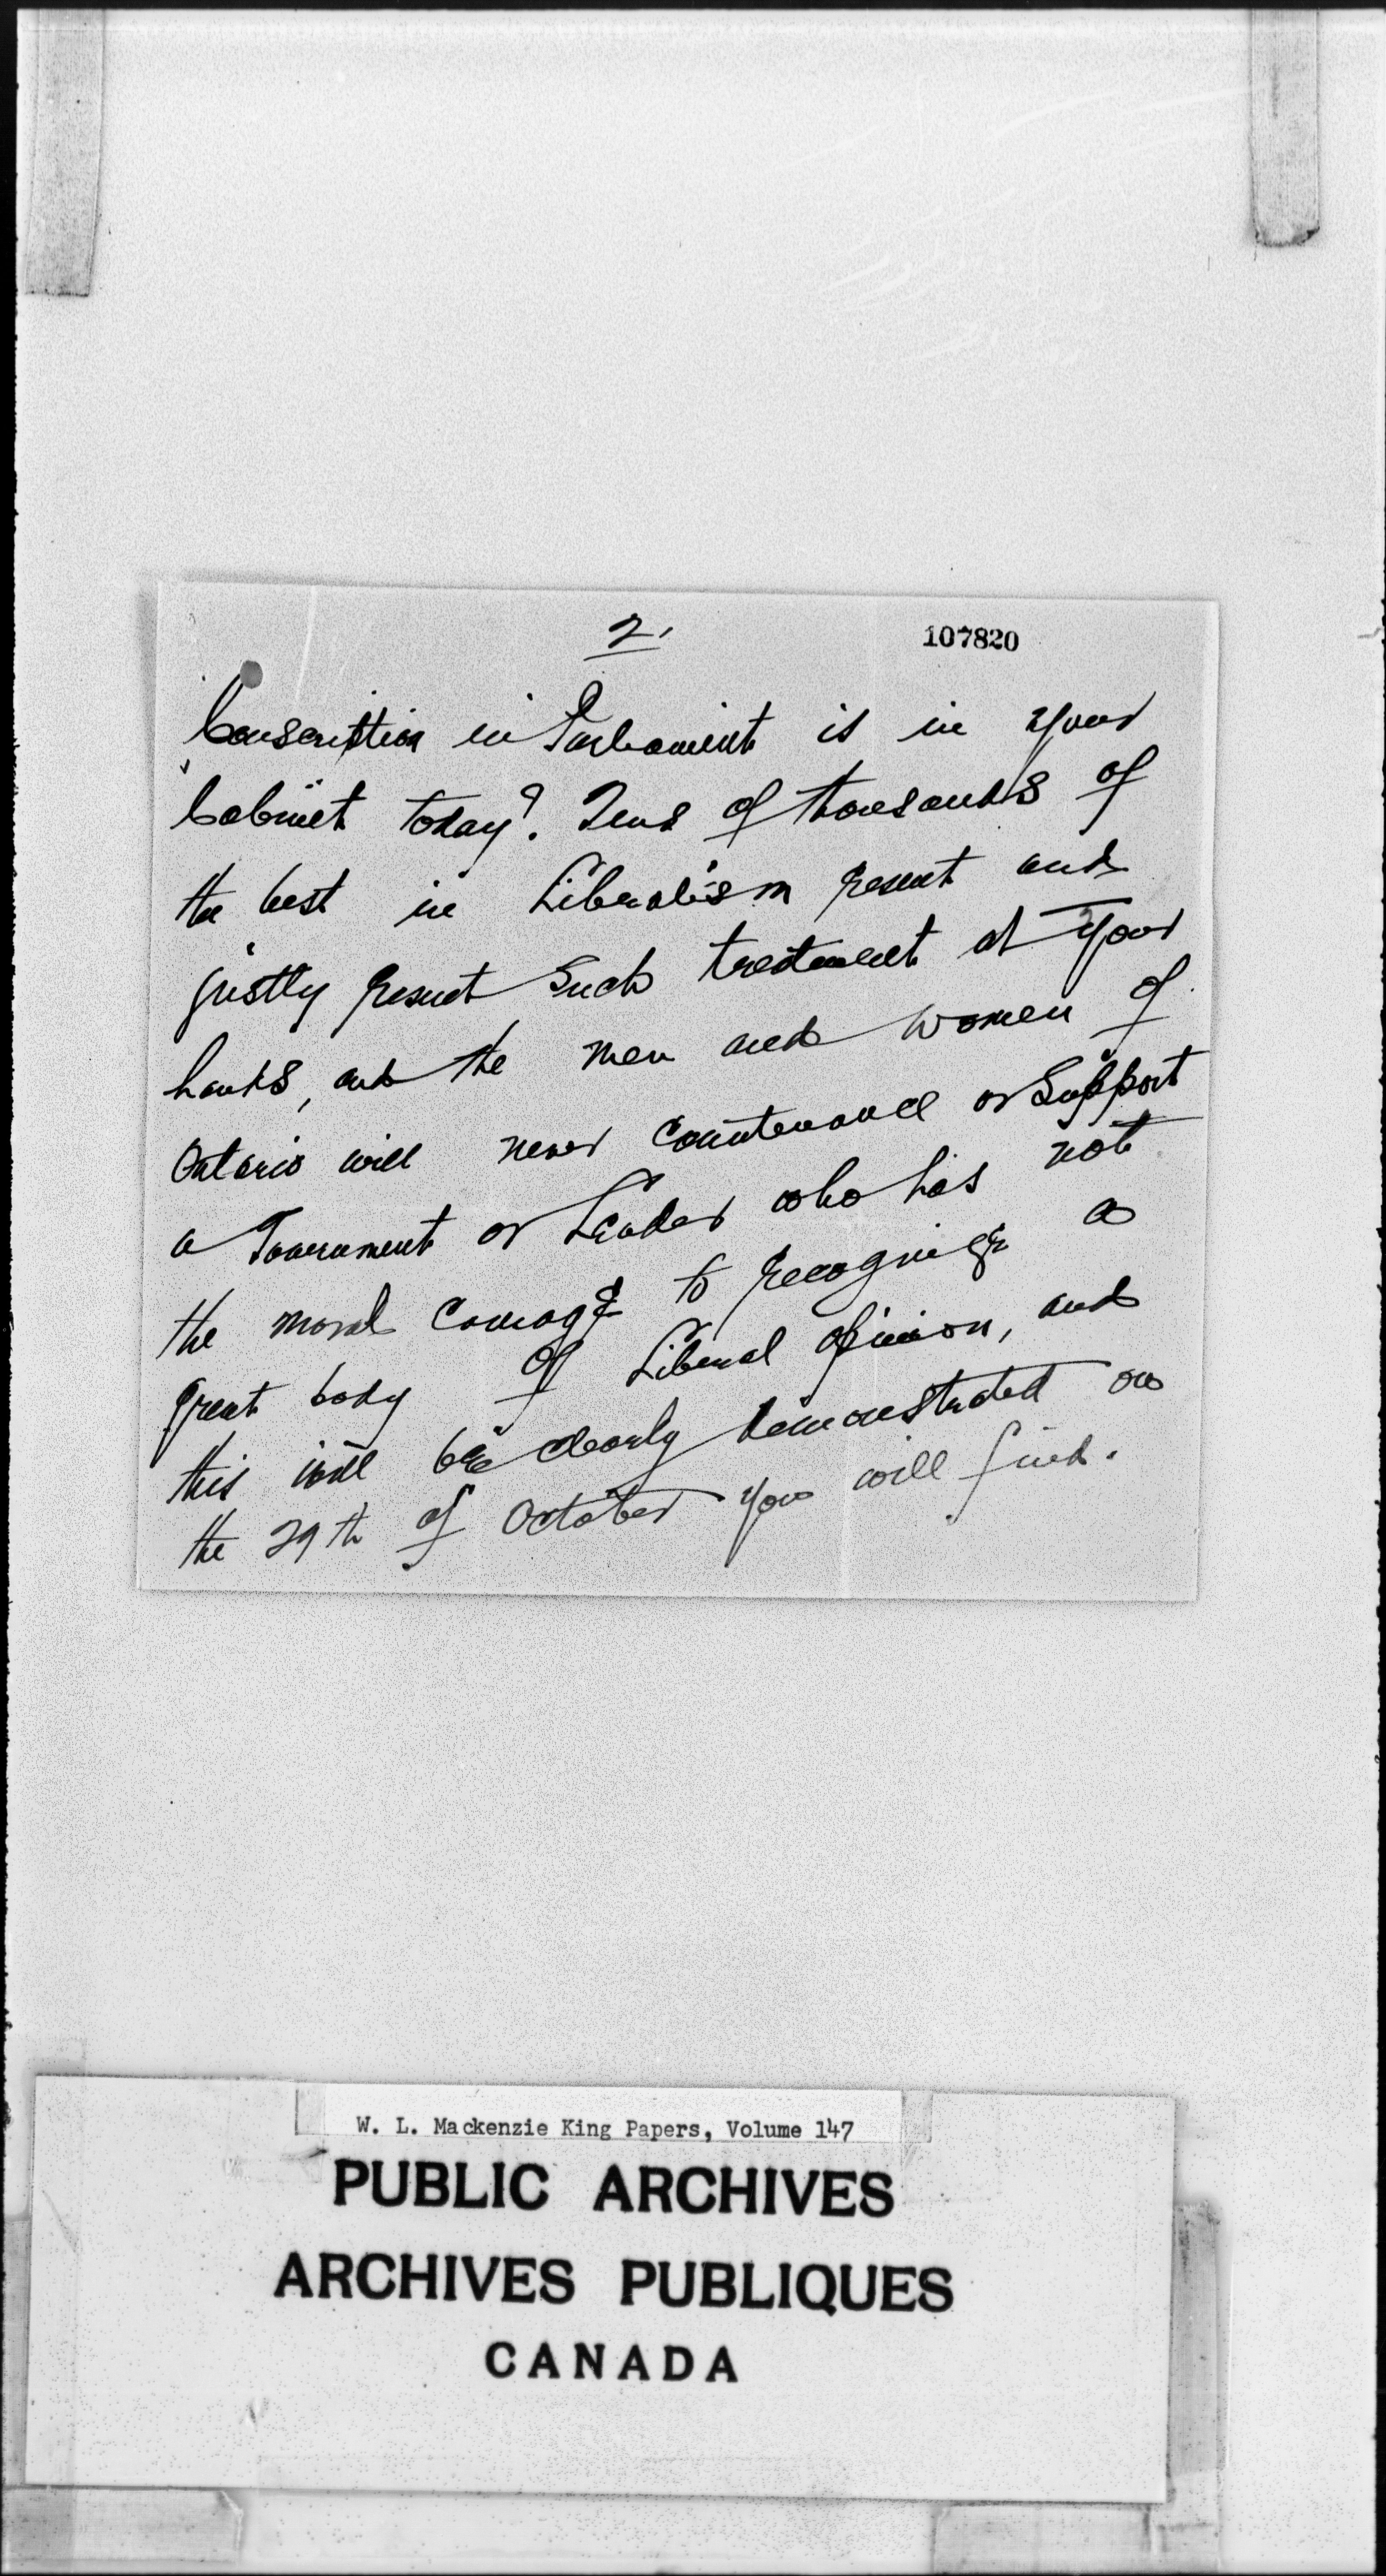 2.
107820
Conscription in Parliament is in your
Cabinet today? Tens of thousands of
the best in Liberalism resent and
justly resent such treatment at your
hands, and the men and women of
Ontario will never countenance or support
a Government or Leader who has not
the moral courage to recognize a
great body of Liberal opinion, and
this will be clearly demonstrated on
the 29th of October you will find.
W. L. Mackenzie King Papers, Volume 147
PUBLIC ARCHIVES
ARCHIVES PUBLIQUES
CANADA